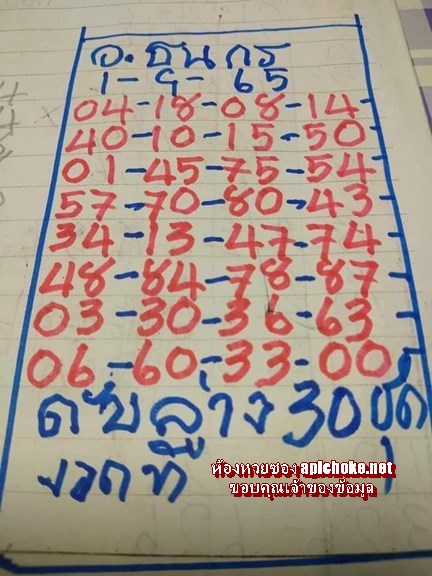 อ. ธนกร
1-4-65
04-18-08-14
40-10-15-50
01-45-75-54
57-70-80-43
34-13-47-74
48-84-78-87
03-30-36-63
06-60-33-00
ล่าง 30 ชุด
งวดที่ 1
ห้องหวยซอง apichoke.net
ขอบคุณเจ้าของข้อมูล